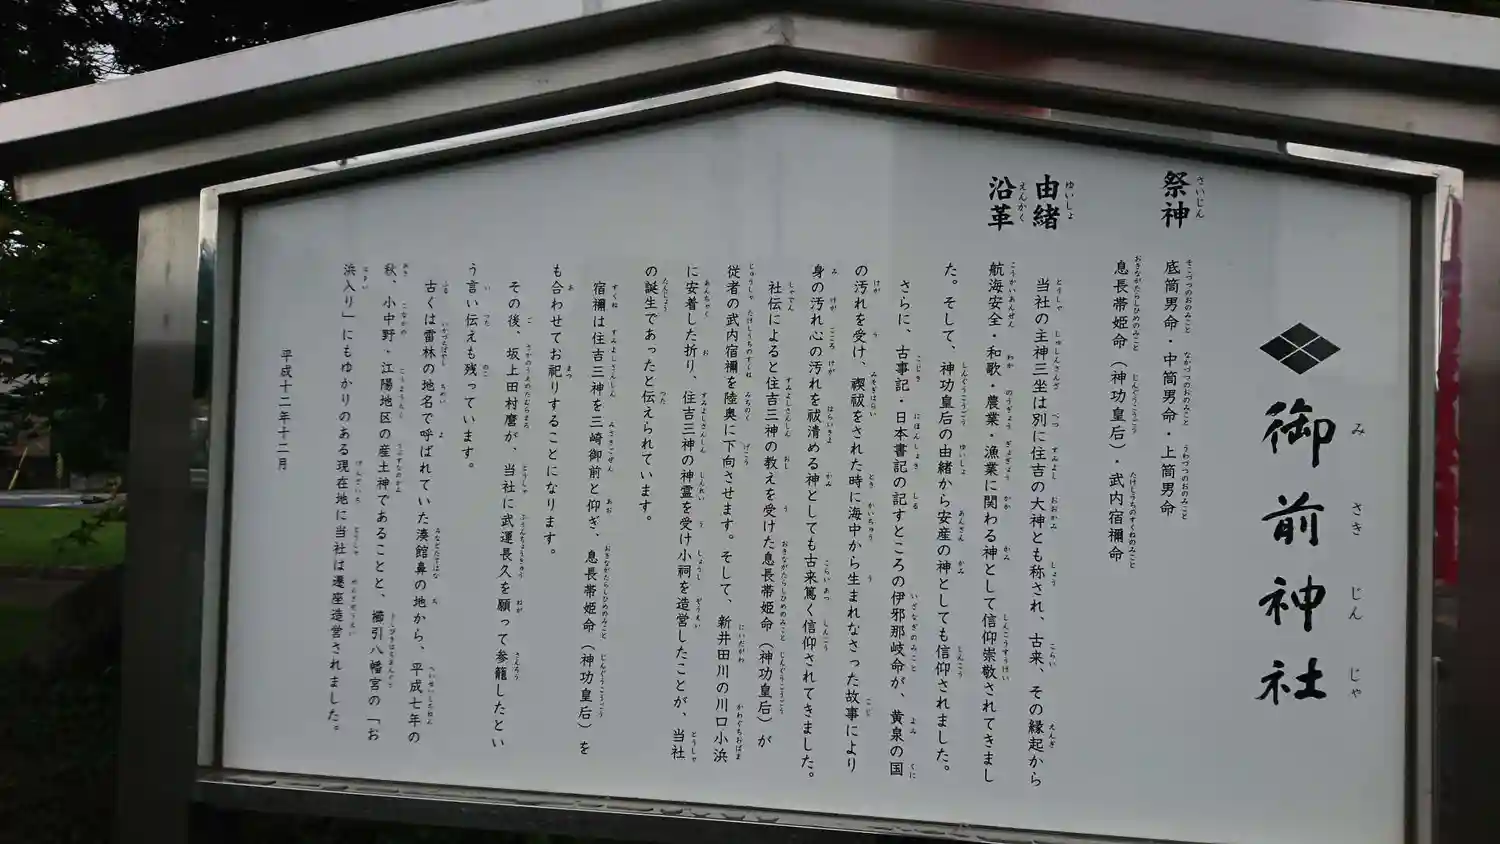 御前神社
みさきじんじゃ
祭神
さいじん
底筒男命・中筒男命・上筒男命
息長帯姫命（神功皇后）・武内宿禰命
由緒
ゆいしょ
沿革
えんかく
当社の主神三坐は別に住吉の大神とも称され、古来、その縁起から
航海安全・和歌・農業・漁業に関わる神として信仰崇敬されてきまし
た。そして、神功皇后の由緒から安産の神としても信仰されました。
さらに、古事記・日本書記の記すところの伊邪那岐命が、黄泉の国
の汚れを受け、禊祓をされた時に海中から生まれなさった故事により
身の汚れ心の汚れを祓清める神としても古来篤く信仰されてきました。
社伝によると住吉三神の教えを受けた息長帯姫命（神功皇后）が
従者の武内宿禰を陸奥に下向させます。そして、新井田川の川口小浜
に安着した折り、住吉三神の神霊を受け小祠を造営したことが、当社
の誕生であったと伝えられています。
宿禰は住吉三神を三崎御前と仰ぎ、息長帯姫命（神功皇后）を
も合わせてお祀りすることになります。
その後、坂上田村麿が、当社に武運長久を願って参籠したとい
う言い伝えも残っています。
古くは雷林の地名で呼ばれていた湊館鼻の地から、平成七年の
秋、小中野・江陽地区の産土神であることと、櫛引八幡宮の「お
浜入り」にもゆかりのある現在地に当社は遷座造営されました。
平成十二年十二月